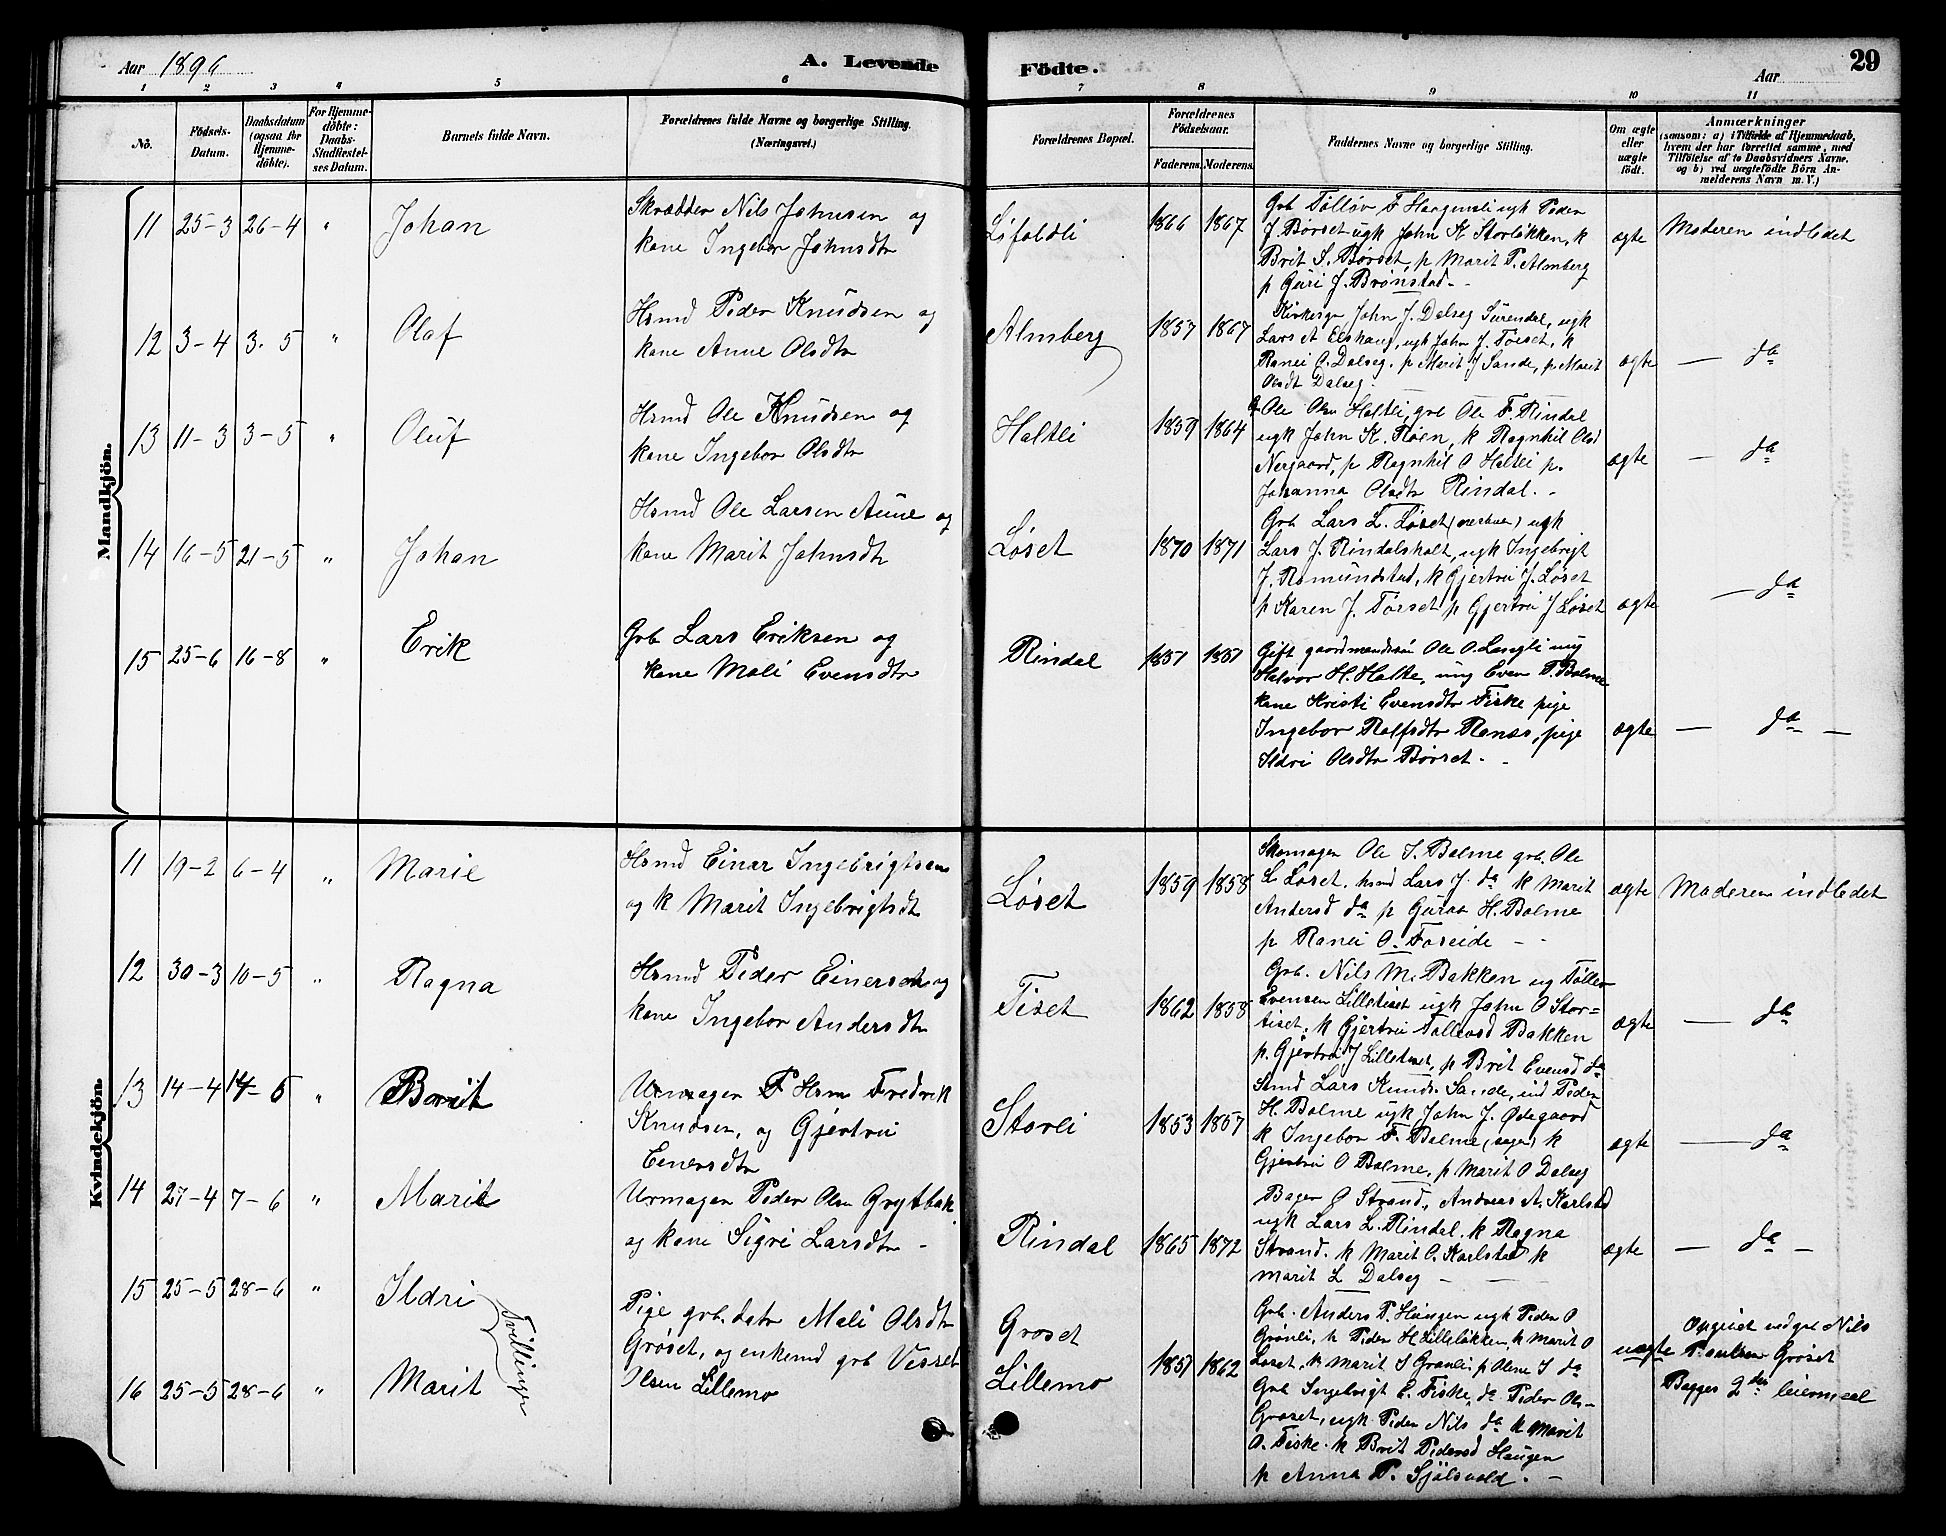 Aar 1896 A. Levende Födte. Aar 29
1 2 3 4 5 6 7 8 9 10 11
No. Födsels-Datum. Daabsdatum (ogsaa for Hjemmedöbte). For Hjemmedöbte: Daabs-Stadfæstelses Datum. Barnets fulde Navn. Forældrenes fulde Navne og borgerlige Stilling. (Næringsvei.) Forældrenes Bopæl. Forældrenes Födselsaar. Faderens. Moderens. Faddernes Navne og borgerlige Stilling. Om ægte eller uægte födt. Anmærkninger (saasom: a) i Tilfælde af Hjemmedaab, hvem der har forrettet samme, med Tilföielse af to Daabsvidners Navne. og b) ved uægtefödte Börn Anmelderens Navn m. V.)
Mandkjön.
11 25-3 26-4 " Johan
Skrædder Nils Johnsen og
kone Ingebor Johnsdtr
Lifaldli 1866 1867
Grb Tölløv F Haugensli ugk Peder
J Børset ugk John K Storløkken, k
Brit S. Børset, p Marit P. Almberg
p Guri J. Brønstad.-
ægte Moderen indledet
12 3-4 3-5 " Olaf
Hsmd Peder Knudsen og
kone Anne Olsdtr
Almberg 1857 1867
Kirkesgr John J. Dalseg Surendal, ugk
Lars A Elshaug, ugk John J. Torset, k
Ranei O. Dalseg. p Marit J Sande, p Marit
Olsdt Dalseg.
ægte — da
13 11-3 3-5 " Oluf
Hsmd Ole Knudsen og
kone Ingebor Olsdtr
Haltli 1859 1864
G Ole Olsn Haltli, grb Ole F. Rindal
ugk John K. Røen, k Ragnhil Olsd
Nergaard, p Ragnhil O Haltli p.
Johanna Olsdtr Rindal.-
ægte — da
14 16-5 21-5 " Johan
Hsmd Ole Larsen Aune og
kone Marit Johnsdtr
Løset 1870 1871
Grb Lars L. Løset ugk
Lars J. Rindalsholt, ugk Ingebrigt
J. Romundstad, k Gjertru J. Løset
p Karen J. Torset p Gjertru J Løset
ægte — da
15 25-6 16-8 " Erik
Grb Lars Eriksen og
kone Mali Evensdtr
Rindal 1851 1851
Gift gaardmandssøn Ole O. Langli ung
Halvor H. Holte, ung Even T. Bolme
kone Kristi Evensdtr Fiske pige
Ingebor Rolfsdtr Ranæs, pige
Ildri Olsdtr Børset.-
ægte — da —
Kvindekjön.
11 19-2 6-4 " Marie
Hsmd Einar Ingebrigtsen
og k Marit Ingebrigtsdt
Løset 1859 1858
Skomager Ole I. Bolme grb. Ole
L Løset. hsmd Lars J. da k Marit
Andersd da p Guraa H. Bolme
p Ranei O. Foseide - -
ægte Moderen indledet
12 30-3 10-5 " Ragna
Hsmd Peder Einersen og
kone Ingebor Andersdtr
Tiset 1862 1858
Grb. Nils M. Bakken ug Töllev
Evensen Lilletiset ugk John O Stor=
tiset. k Gjertru Tollevsd Bakken
p. Gjertru J Lilletiset, p Brit Evensd da
ægte — da
13 14-4 14-5 " Borit
Urmager F Hsm Fredrik
Knudsen, og Gjertru
Einersdtr
Storli 1853 1857
Smd Lars Knuds. Sande, ind Peder
H. Bolme ugk John J. Ødegaard
k Ingebor F. Bolme k
Gjertru O Bolme, p Marit O Dalseg
ægte — da
14 27-4 7-6 " Marit
Urmager Peder Olsn Grytbak
og kone Sigri Larsdtr -
Rindal 1865 1872
Bager O Strand, Andreas A. Karlstad
ugk Lars L. Rindal. k Ragna
Strand. k Marit O. Karlstad k
Marit L Dalseg -
ægte — da —
15 25-5 28-6 " Ildri
Tvillinger
16 25-5 28-6 " Marit
Pige grb. datr Mali Olsdtr
Grøset, og enkemd grb Vesset
Olsen Lillemo
Groset
Lillemo 1857 1862
Grb. Anders P. Haugen ugk Peder O
Grønli, k Peder H Lilleløkken, k Marit O
Løset, k Marit I Grønli, p Olme I da
Grb Ingebrigt E. Fiske, da Peder Ols-
Groset, ugk Peder Nils da k Marit
O. Fiske. k Brit Pedersd Haugen
p Anna P. Sjølsvold.-
uægte Opgivet ved grb Nils
Paulsen Grøset
Begges 2det leiermaal